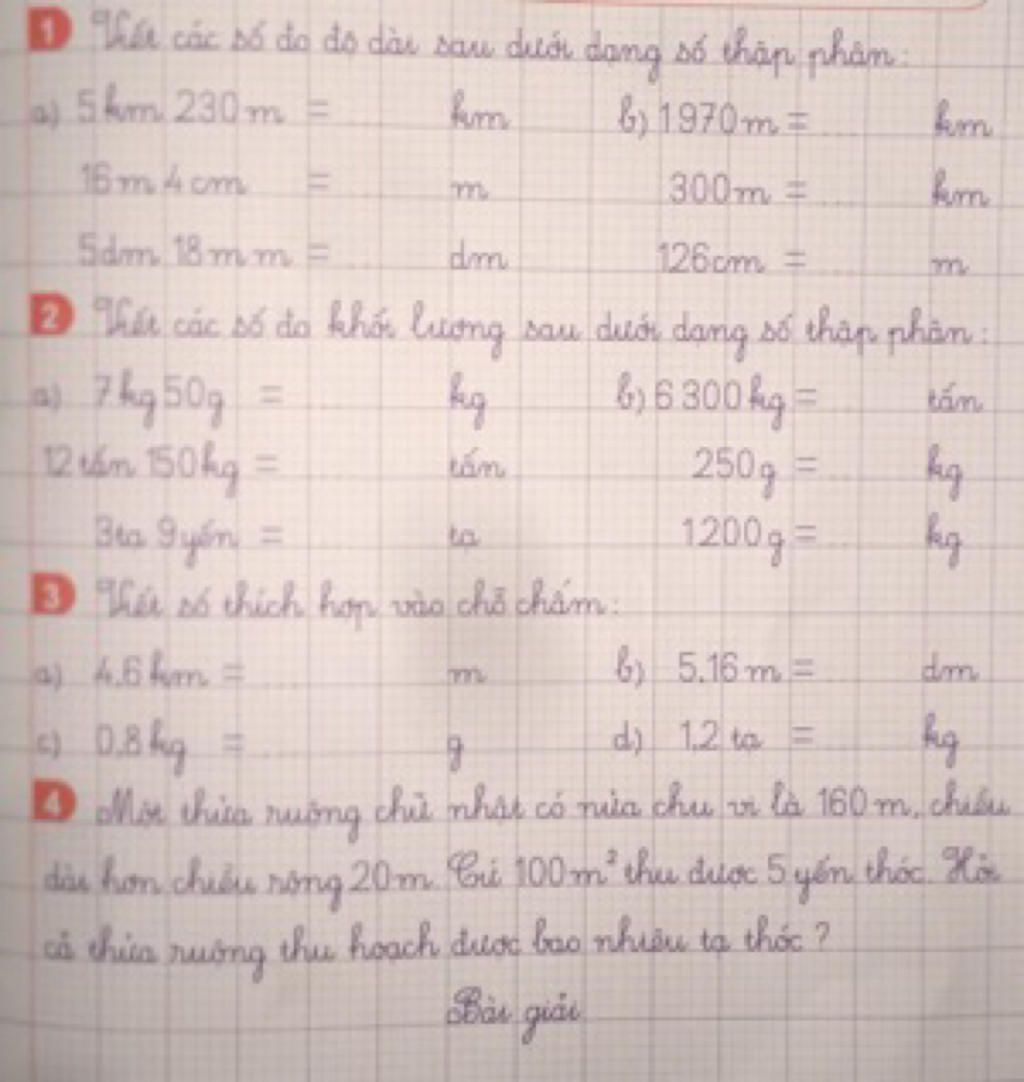 1 Viết các số đo độ dài sau dưới dạng số thập phân:
a) 5km 230m = ... km b) 1970m = ... km
16m 4cm = ... m 300m = ... km
5dm 18mm = ... dm 126cm = ... m
2 Viết các số đo khối lượng sau dưới dạng số thập phân:
a) 7kg 50g = ... kg b) 6300kg = ... tấn
12 tấn 150kg = ... tấn 250g = ... kg
3 tạ 9 yến = ... tạ 1200g = ... kg
3 Viết số thích hợp vào chỗ chấm:
a) 4,6km = ... m b) 5,16m = ... dm
c) 0,8kg = ... g d) 1,2 tạ = ... kg
4 Một thửa ruộng chữ nhật có nửa chu vi là 160m, chiều
dài hơn chiều rộng 20m. Cứ 100m² thu được 5 yến thóc. Hỏi
cả thửa ruộng thu hoạch được bao nhiêu tạ thóc?
Bài giải